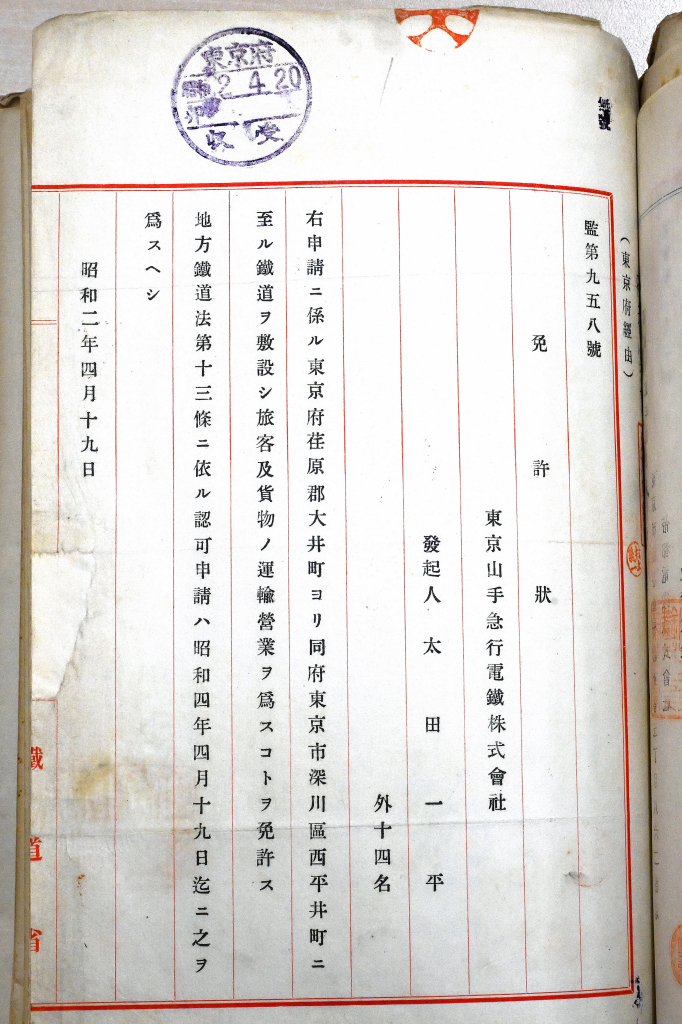 (東京府經由)
監第九五八號
免許狀
東京山手急行電鐵株式會社
發起人太田一平
外十四名
右申請ニ係ル東京府荏原郡大井町ヨリ同府東京市深川區西平井町ニ
至ル鐵道ヲ敷設シ旅客及貨物ノ運輸營業ヲ爲スコトヲ免許ス
地方鐵道法第十三條ニ依ル認可申請ハ昭和四年四月十九日迄ニ之ヲ
爲スヘシ
昭和二年四月十九日
鐵道省
東京府
2.4.20
收受